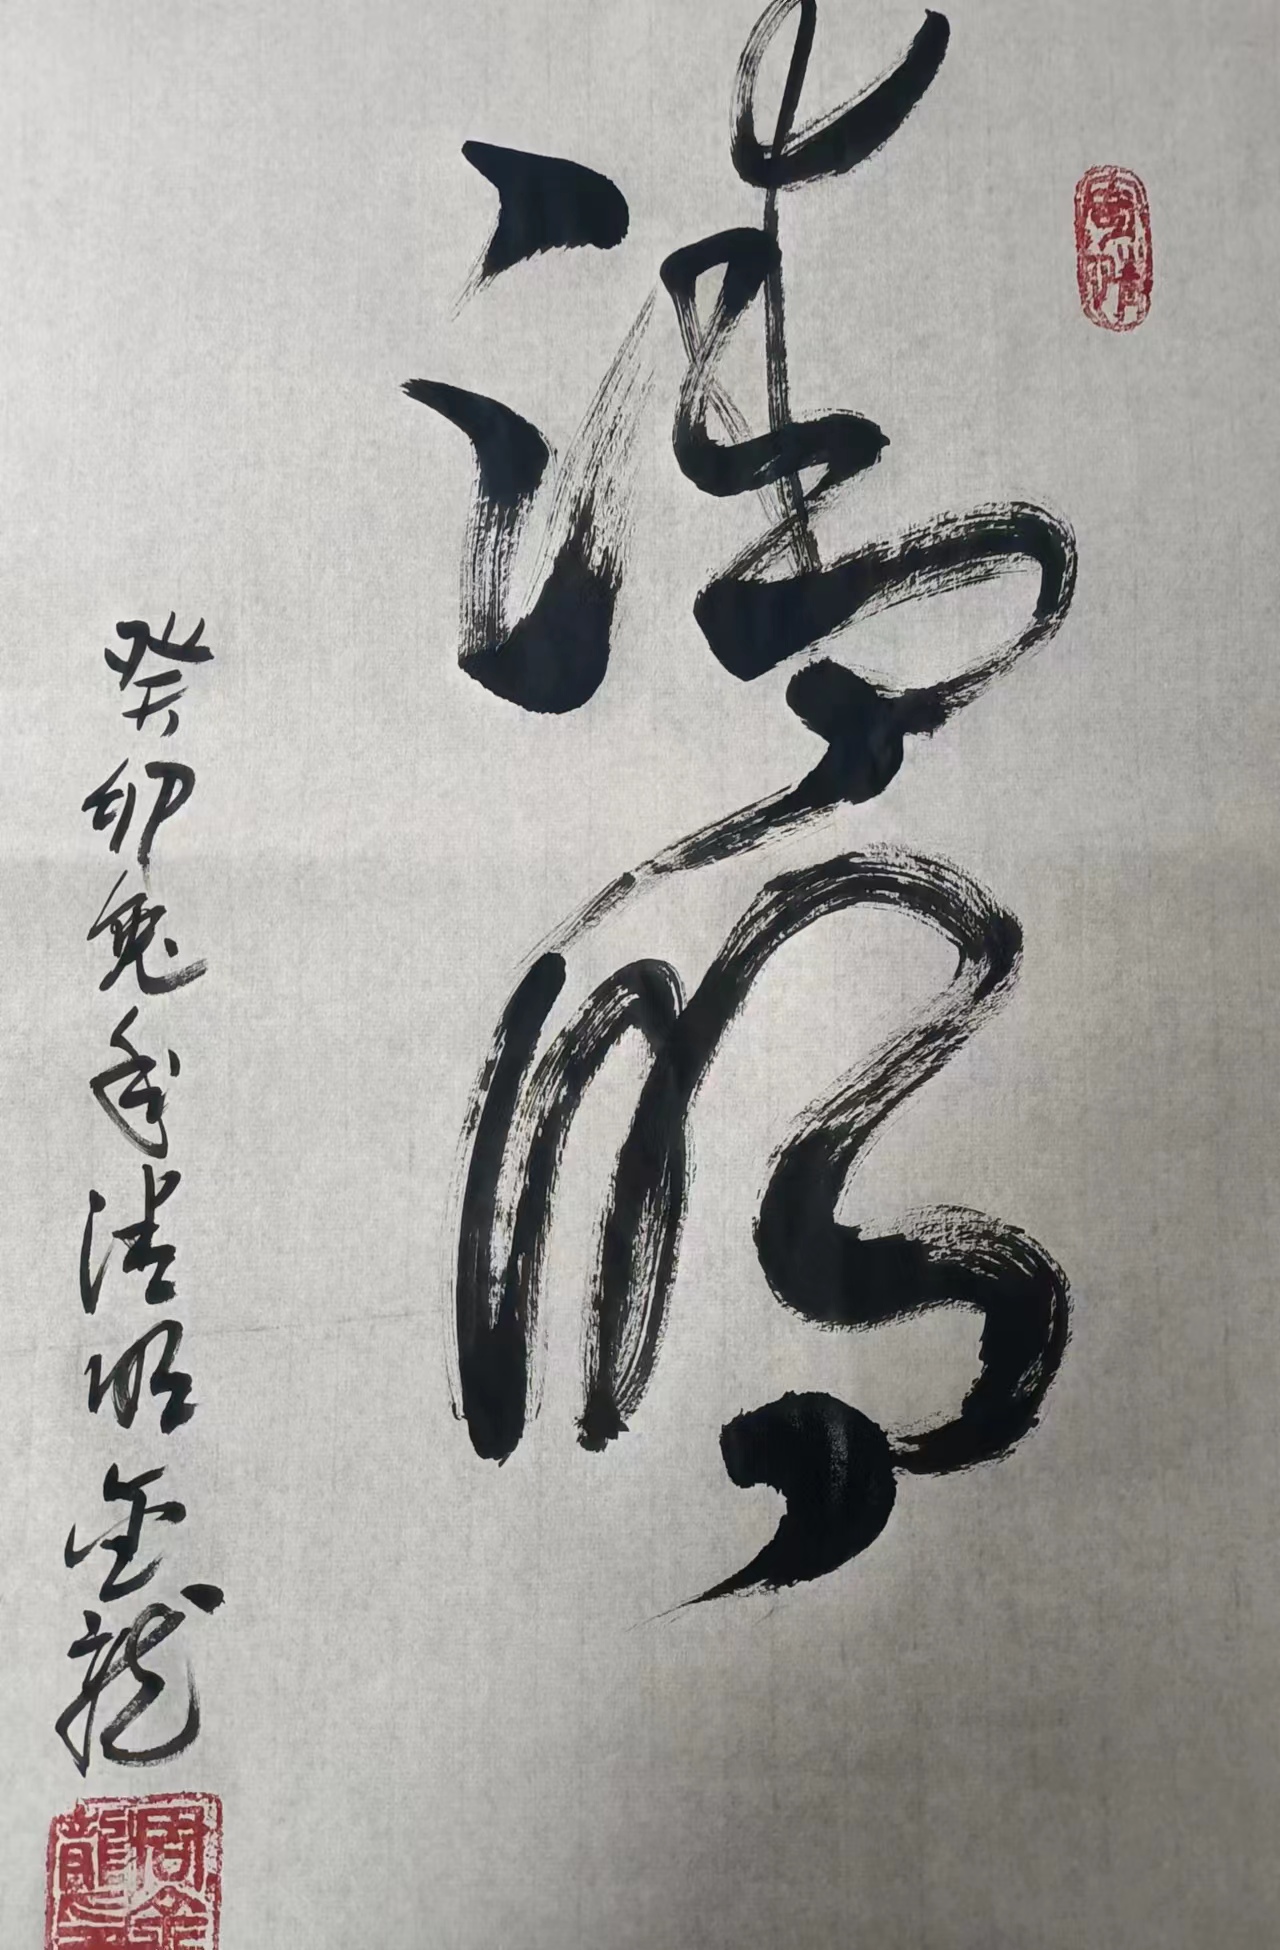 清明
癸卯兔年清明金龍